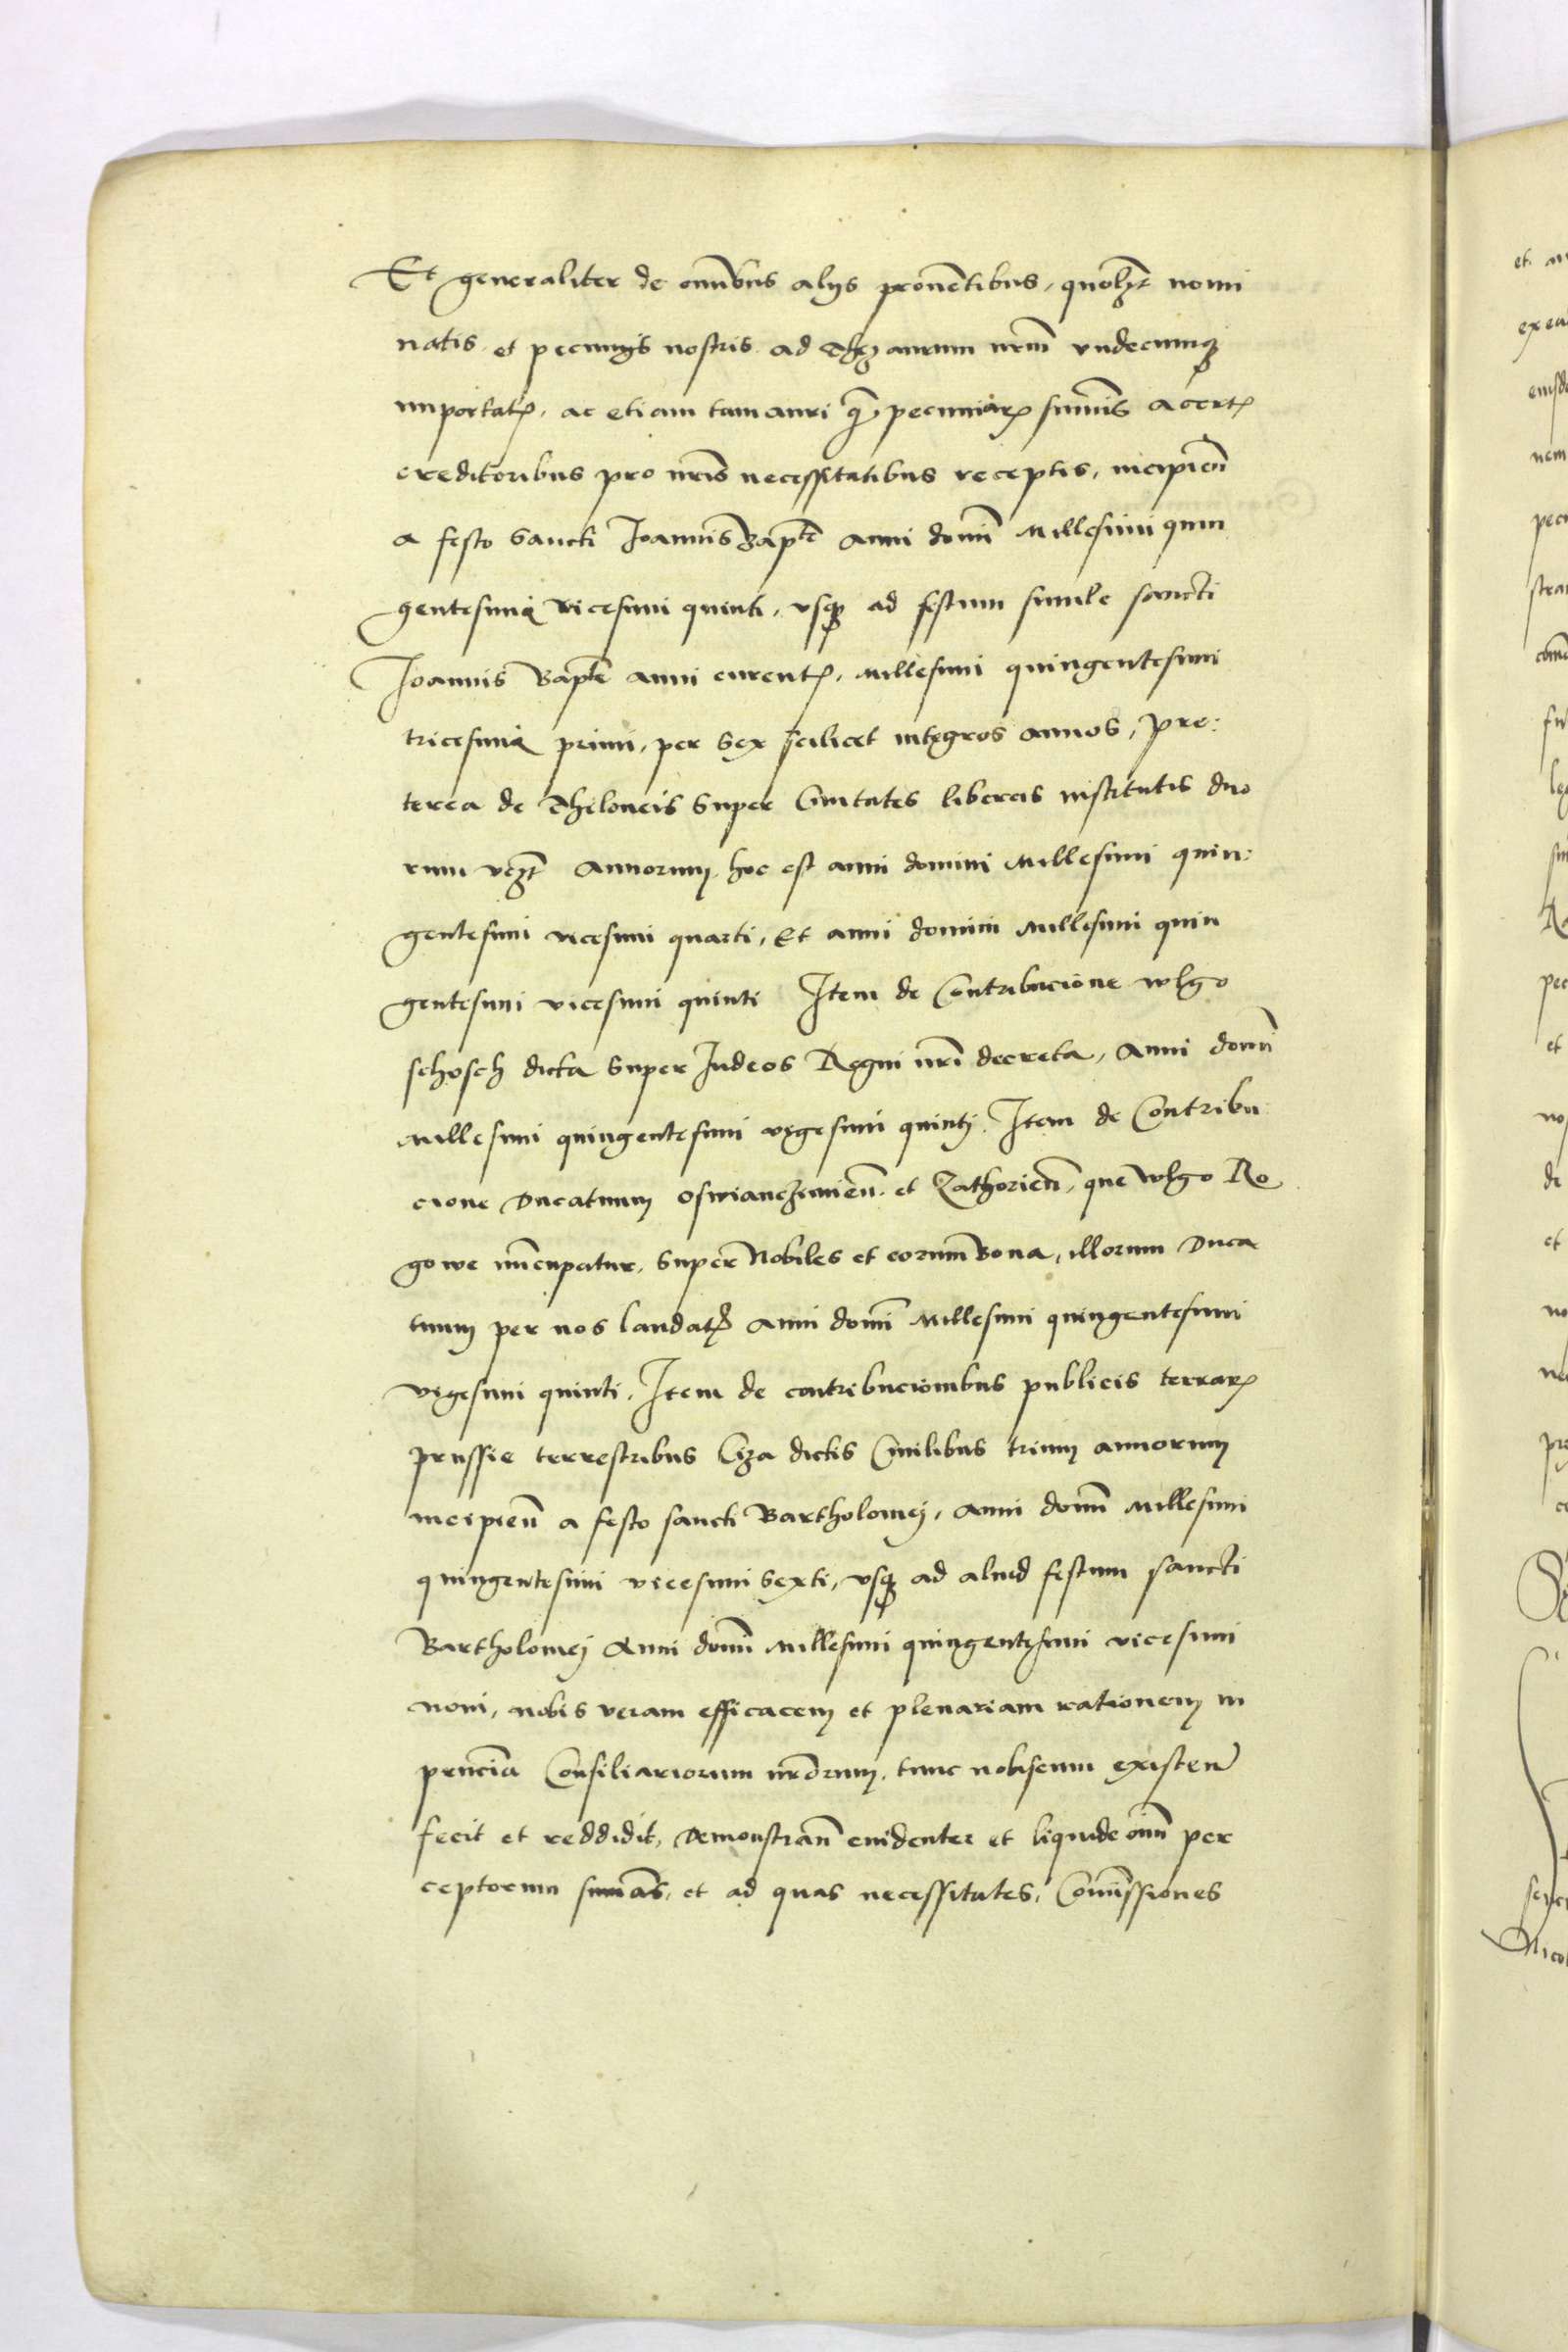 Et generaliter de omībus alijs proventibus, quolzt nomi
natis et pecunijs nostris ad Thezaurum nrm̄ vndecumq
importatꝫ, ac etiam tam auri q̄ pecuniarꝫ sum̄is a certꝫ
creditoribus pro nris̄ necessitatibus receptis, incipien̄
a festo Sancti Joannis Bapte̅ Anni domī Millesimi quin
gentesimi vicesimi quinti, vsq ad festum simile sancti
Joannis Bapte̅ anni curentꝫ, Millesimi quingentesimi
tricesimi primi, per Sex scilicet integros annos, Pre:
terea de Theloneis Super Ciuitates liberas institutis duo
rum vꝫt Annorum, hoc est anni domini Millesimi quin:
gentesimi vicesimi quarti, Et anni domini Millesimi quin
gentesimi vicesimi quinti Item de Contribucione wlgo
schosch dicta Super Iudeos Regni nrī decreta, Anni domī
Millesimi quingentesimi vigesimi quintj. Item de Contribu:
cione Ducatuum Oswianczimien̄. et Zathorien̄, que wlgo Ro
gowe nūcupatur, Super Nobiles et eorum Bona, illorum Duca
tuum per nos laudatꝫ Anni domī Millesimi quingentesimi
vigesimi quinti, Item de contribucionibus publicis terrarꝫ
prussie terrestribus Ciza dictis Ciuilibus trium annorum
incipien̄ a festo sancti Bartholomej, Anni domī Millesimi
quingentesimi vicesimi Sexti, vsq ad aliud festum sancti
Bartholomej Anni domī Millesimi quingentesimi vicesimi
noni, nobis veram efficacem et plenariam rationem in
prn̄cia Consiliariorum nrōrum, tunc nobiscum existen̄
fecit et reddidit, Demonstran̄ euidenter et liquide oīm per
ceptorum sumās, et ad quas necessitates, Com̄issiones